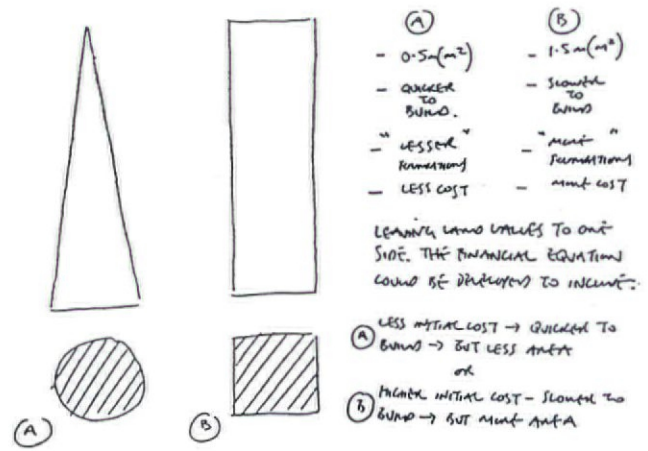 A
- 0.5m(m²)
- QUICKER
TO
BUILD.
- "LESSER"
FOUNDATIONS
- LESS COST
B
- 1.5m(m²)
- SLOWER
TO
BUILD
- "MORE"
FOUNDATIONS
- MORE COST
LEAVING LAND VALUES TO ONE
SIDE. THE FINANCIAL EQUATION
COULD BE DEVELOPED TO INCLUDE:
A LESS INITIAL COST → QUICKER TO
BUILD → BUT LESS AREA
OR
B HIGHER INITIAL COST - SLOWER TO
BUILD → BUT MORE AREA
A
B